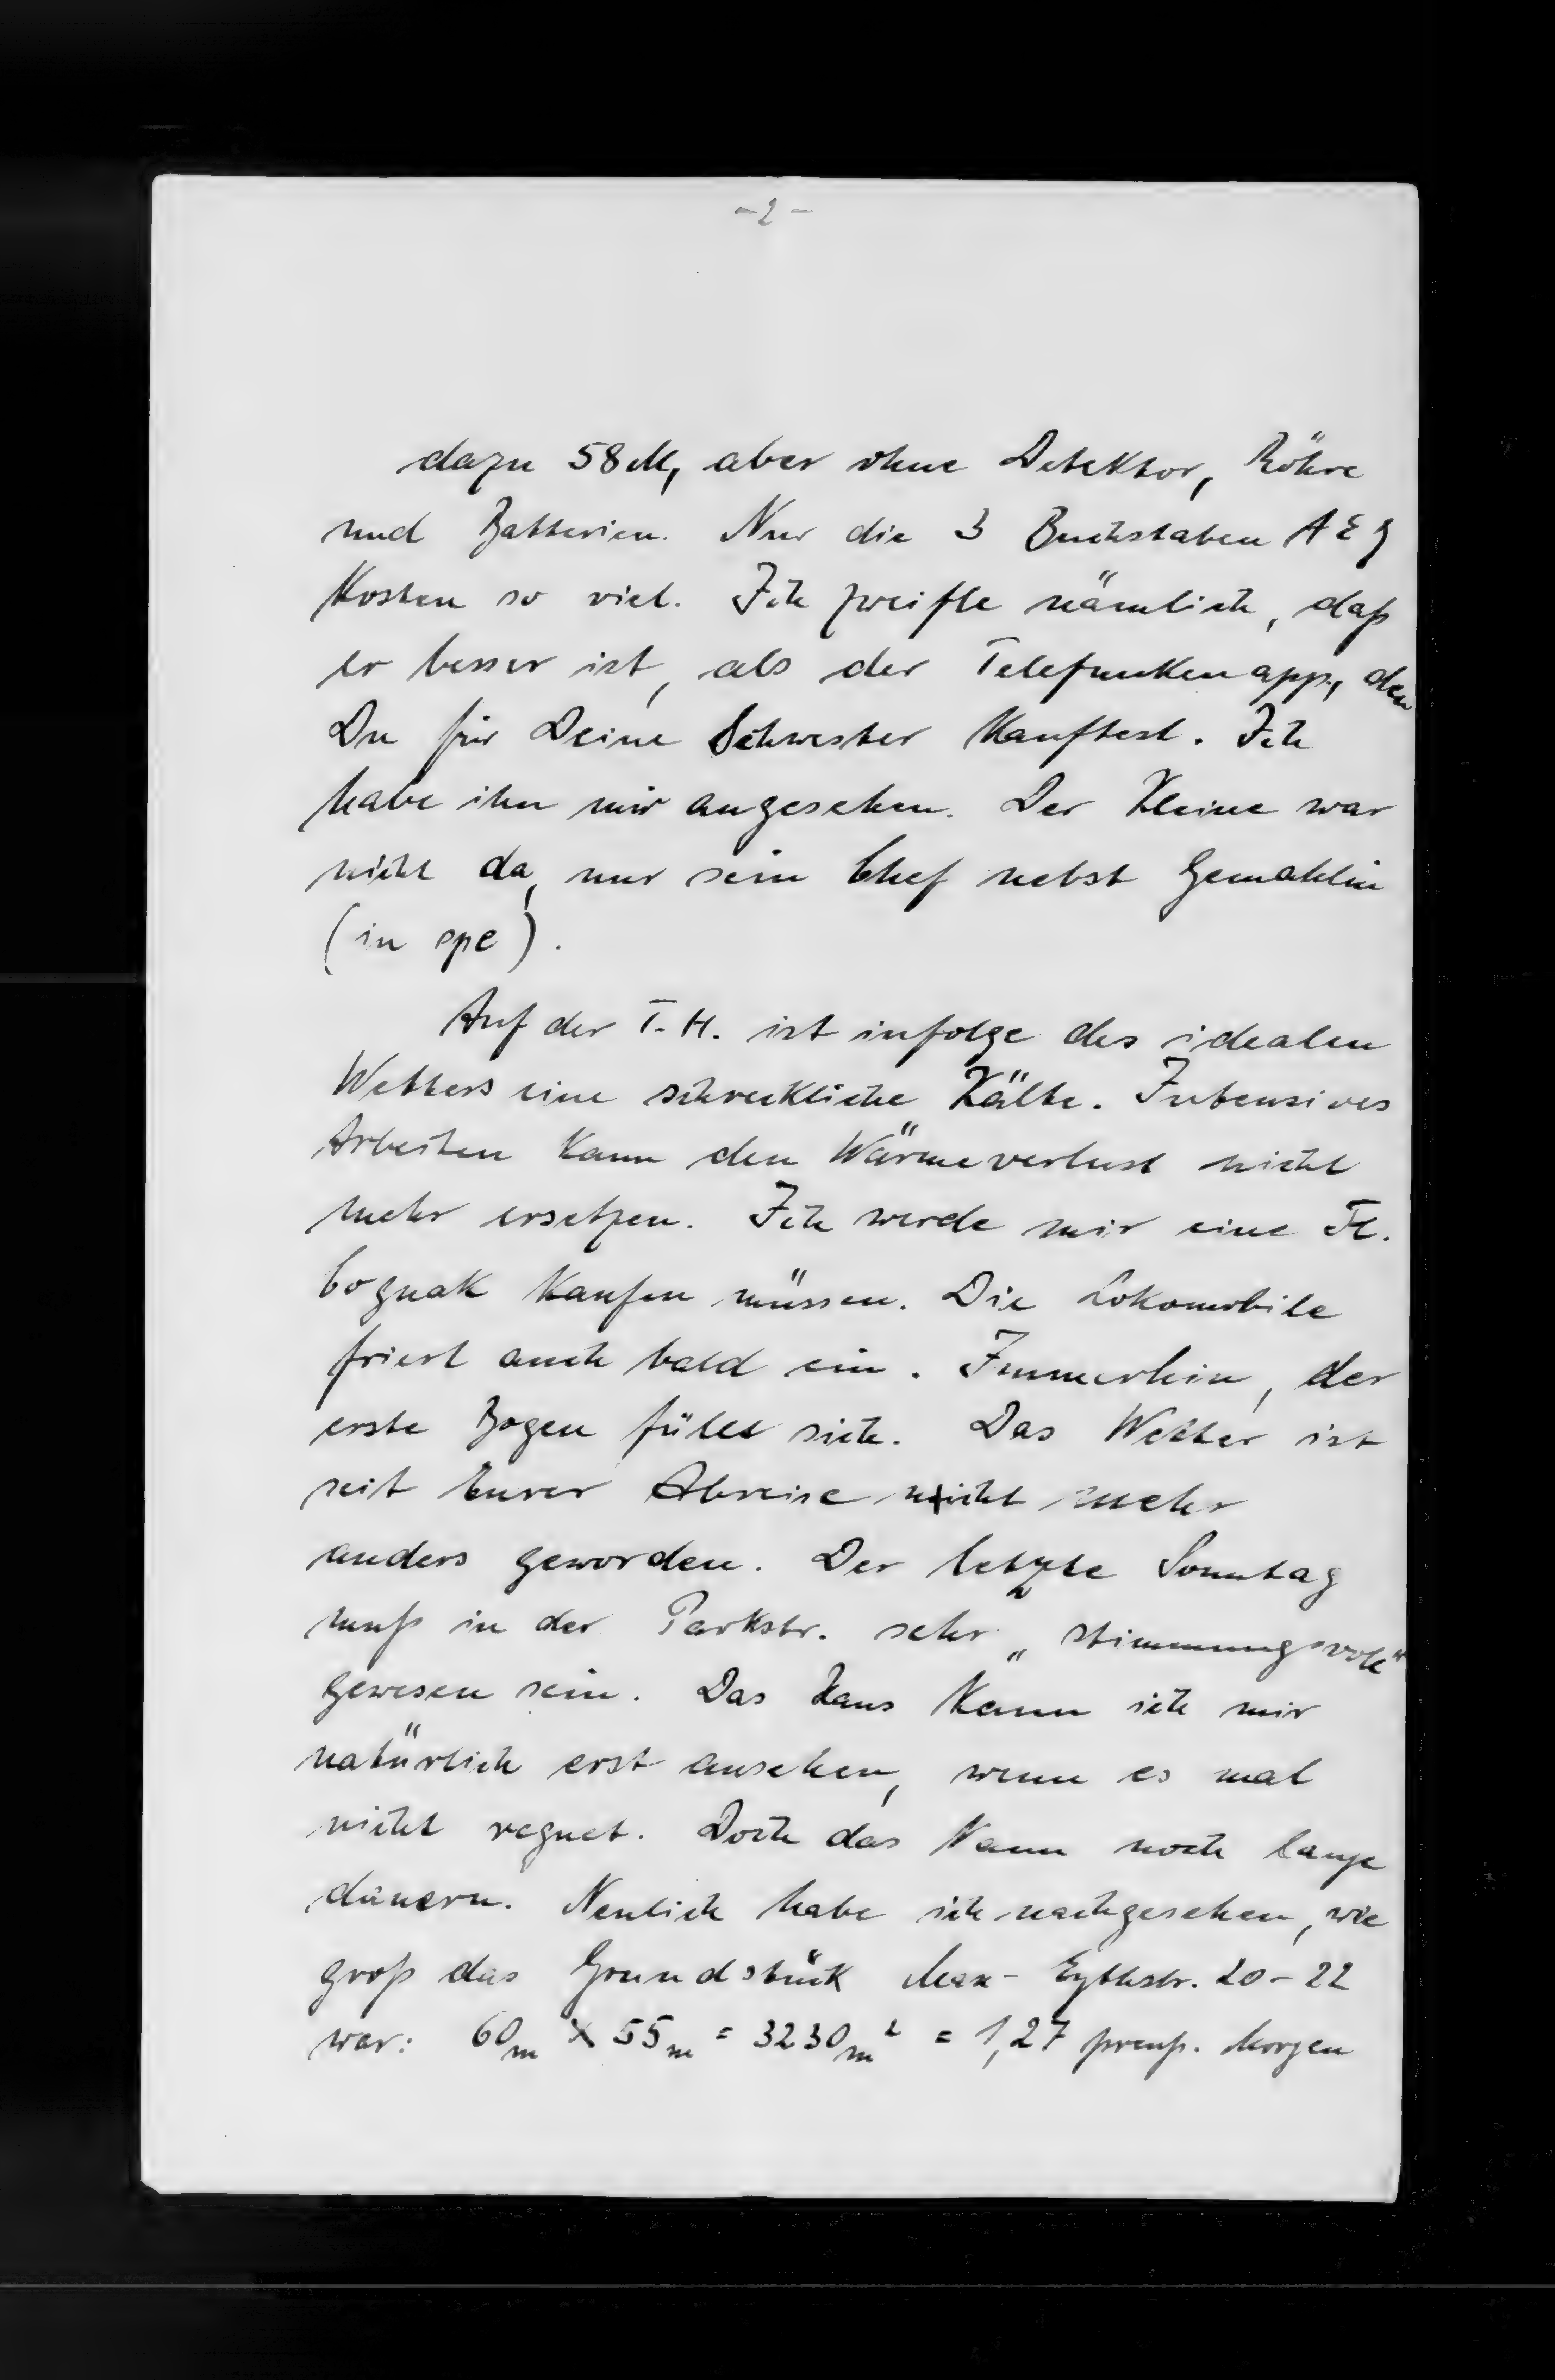 - 2 -
dazu 58 M, aber ohne Detektor, Röhre
und Batterien. Nur die 3 Buchstaben AEG
kosten so viel. Ich zweifle nämlich, daß
er besser ist, als der Telefunkenapp., den
Du für Deine Schwester kauftest. Ich
habe ihn mir angesehen. Der Kleine war
nicht da, nur sein Chef nebst Gemahlin
(in spe).
Auf der T.H. ist infolge des idealen
Wetters eine schreckliche Kälte. Intensives
Arbeiten kann den Wärmeverlust nicht
mehr ersetzen. Ich werde mir eine Fl.
Cognak kaufen müssen. Die Lokomobile
friert auch bald ein. Immerhin, der
erste Bogen füllt sich. Das Wetter ist
seit Eurer Abreise nicht mehr
anders geworden. Der letzte Sonntag
muß in der Parkstr. sehr „stimmungsvoll"
gewesen sein. Das Haus kann ich mir
natürlich erst ansehen, wenn es mal
nicht regnet. Doch das kann noch lange
dauern. Neulich habe ich nachgesehen, wie
groß das Grundstück Max-Eythstr. 20-22
war: 60m × 55m = 3230m² = 1,27 preuß. Morgen